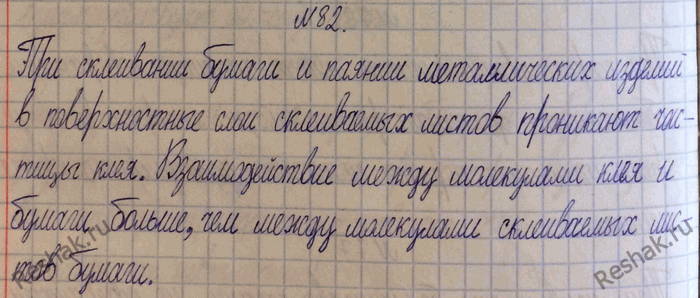 №82.
При склеивании бумаги и паянии металлических изделий
в поверхностные слои склеиваемых листов проникают час-
тицы клея. Взаимодействие между молекулами клея и
бумаги больше, чем между молекулами склеиваемых лис-
тов бумаги.
Reshak.ru
Reshak.ru